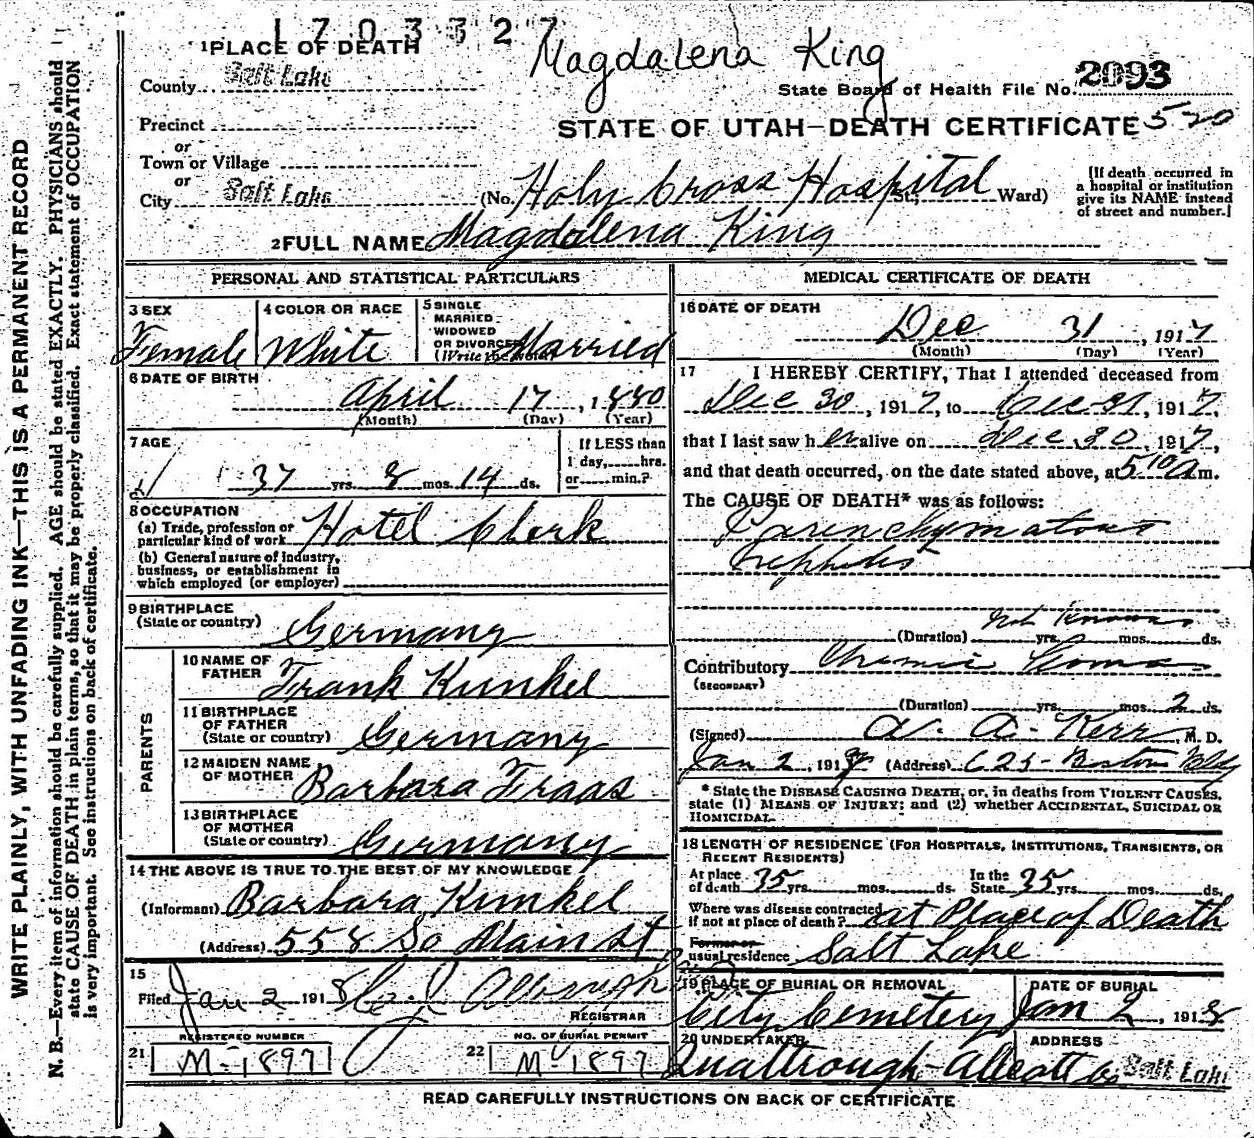 1703327
Magdalena King
1 PLACE OF DEATH
County Salt Lake
State Board of Health File No. 2093
Precinct
STATE OF UTAH—DEATH CERTIFICATE 5-20
or
Town or Village
or
City Salt Lake (No. Holy Cross Hospital St.; Ward)
[If death occurred in
a hospital or institution
give its NAME instead
of street and number.]
2 FULL NAME Magdalena King
PERSONAL AND STATISTICAL PARTICULARS
3 SEX
Female
4 COLOR OR RACE
White
5 SINGLE
MARRIED
WIDOWED
OR DIVORCED
(Write the word)
Married
6 DATE OF BIRTH
April 17, 1880
(Month) (Day) (Year)
7 AGE
37 yrs. 8 mos. 14 ds.
If LESS than
1 day, hrs.
or min.?
8 OCCUPATION
(a) Trade, profession or
particular kind of work Hotel Clerk
(b) General nature of industry,
business, or establishment in
which employed (or employer)
9 BIRTHPLACE
(State or country) Germany
PARENTS
10 NAME OF
FATHER Frank Kunkel
11 BIRTHPLACE
OF FATHER
(State or country) Germany
12 MAIDEN NAME
OF MOTHER Barbara Fraas
13 BIRTHPLACE
OF MOTHER
(State or country) Germany
14 THE ABOVE IS TRUE TO THE BEST OF MY KNOWLEDGE
(Informant) Barbara Kunkel
(Address) 558 So Main st
15
Filed Jan 2 1918
REGISTRAR
REGISTERED NUMBER
21 M-1897
NO. OF BURIAL PERMIT
22 M 1897
MEDICAL CERTIFICATE OF DEATH
16 DATE OF DEATH
Dec 31, 1917
(Month) (Day) (Year)
17 I HEREBY CERTIFY, That I attended deceased from
Dec 30, 1917, to Dec 31, 1917,
that I last saw her alive on Dec 30, 1917,
and that death occurred, on the date stated above, at 5 10 a m.
The CAUSE OF DEATH* was as follows:
Parenchymatous
Nephritis
Not Known
(Duration) yrs. mos. ds.
Contributory Uremic Coma
(SECONDARY)
(Duration) yrs. mos. 2 ds.
(Signed) A. A. Kerr, M. D.
Jan 2, 1918 (Address) 625 Boston Bldg
* State the DISEASE CAUSING DEATH, or, in deaths from VIOLENT CAUSES,
state (1) MEANS OF INJURY; and (2) whether ACCIDENTAL, SUICIDAL OR
HOMICIDAL.
18 LENGTH OF RESIDENCE (FOR HOSPITALS, INSTITUTIONS, TRANSIENTS, OR
RECENT RESIDENTS)
At place
of death 35 yrs. mos. ds.
In the
State 35 yrs. mos. ds.
Where was disease contracted
if not at place of death? at Place of Death
Former or
usual residence Salt Lake
19 PLACE OF BURIAL OR REMOVAL
City Cemetery
DATE OF BURIAL
Jan 2, 1918
20 UNDERTAKER
Quattrough-Allcott Co
ADDRESS
Salt Lake
READ CAREFULLY INSTRUCTIONS ON BACK OF CERTIFICATE
WRITE PLAINLY, WITH UNFADING INK—THIS IS A PERMANENT RECORD
N. B.—Every item of information should be carefully supplied. AGE should be stated EXACTLY. PHYSICIANS should
state CAUSE OF DEATH in plain terms, so that it may be properly classified. Exact statement of OCCUPATION
is very important. See instructions on back of certificate.